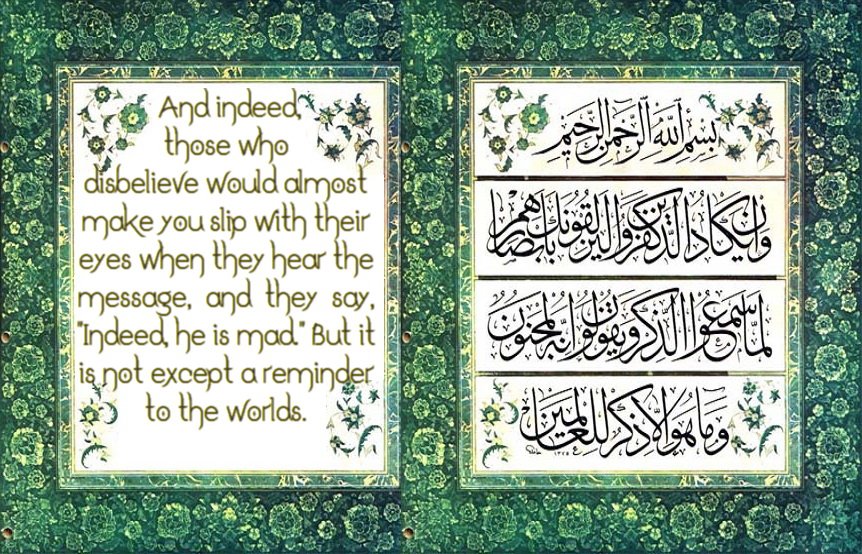 And indeed,
those who
disbelieve would almost
make you slip with their
eyes when they hear the
message, and they say,
"Indeed, he is mad." But it
is not except a reminder
to the worlds.
بسم الله الرحمن الرحيم
وان يكاد الذين كفروا ليزلقونك بابصارهم
لما سمعوا الذكر ويقولون انه لمجنون
وما هو الا ذكر للعالمين